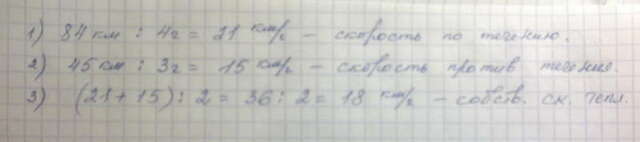 1) 84 км : 4ч = 21 км/ч – скорость по течению.
2) 45 км : 3ч = 15 км/ч – скорость против течения.
3) (21 + 15) : 2 = 36 : 2 = 18 км/ч – собств. ск. тепл.